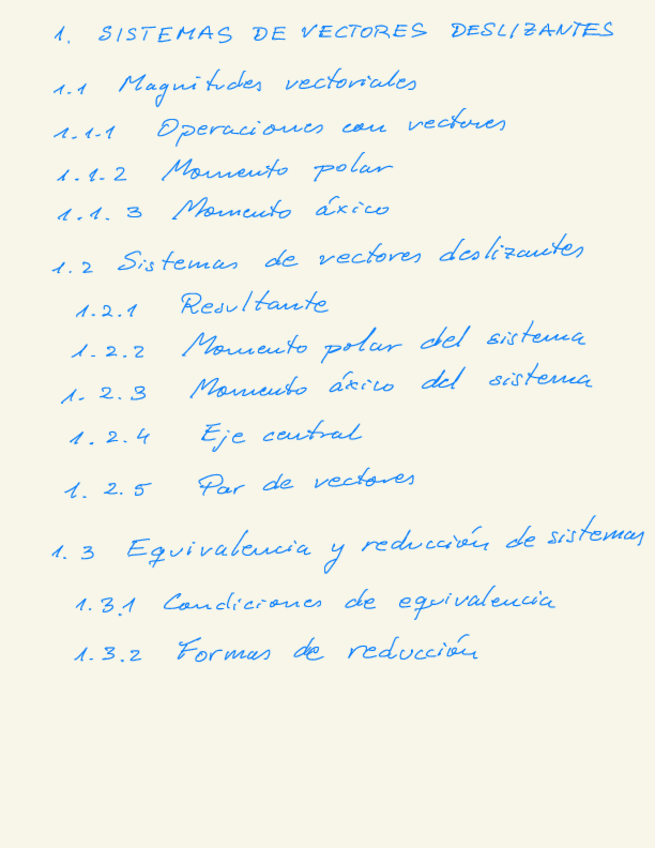 1. SISTEMAS DE VECTORES DESLIZANTES
1.1 Magnitudes vectoriales
1.1.1 Operaciones con vectores
1.1.2 Momento polar
1.1.3 Momento áxico
1.2 Sistemas de vectores deslizantes
1.2.1 Resultante
1.2.2 Momento polar del sistema
1.2.3 Momento áxico del sistema
1.2.4 Eje central
1.2.5 Par de vectores
1.3 Equivalencia y reducción de sistemas
1.3.1 Condiciones de equivalencia
1.3.2 Formas de reducción